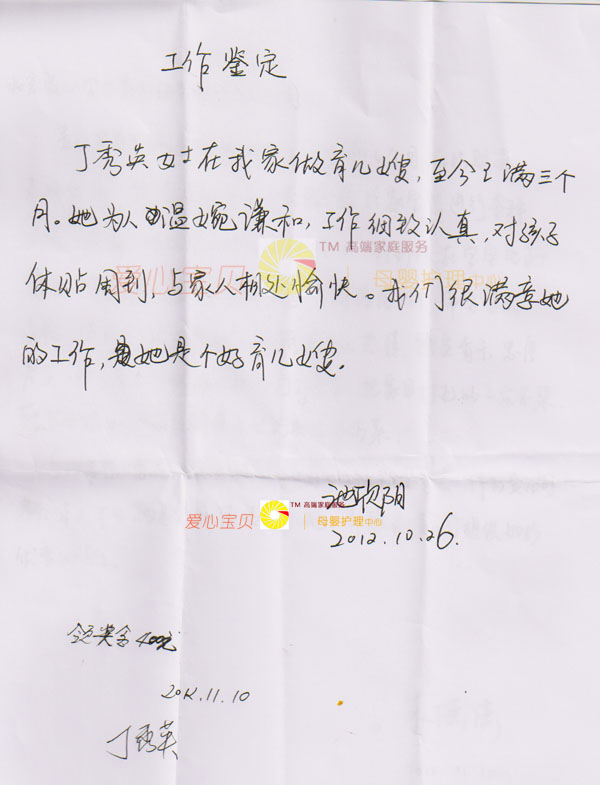 工作鉴定
丁秀英女士在我家做育儿嫂,至今已满三个
月。她为人温婉谦和,工作细致认真,对孩子
TM 高端家庭服务
爱心宝贝 母婴护理中心
体贴周到,与家人相处愉快。我们很满意她
的工作,她是个好育儿嫂。
池欣阳
TM 高端家庭服务
爱心宝贝 母婴护理中心
2012.10.26.
领奖金400元
2012.11.10
丁秀英